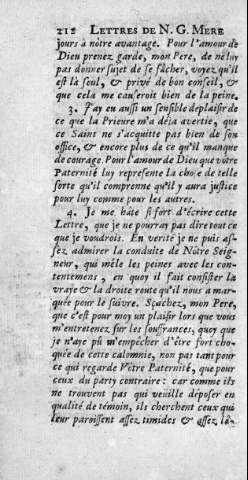 212 LETTRES DE N. G. MERE
jours à nôtre avantage. Pour l'amour de
Dieu prenez garde, mon Pere, de ne luy
pas donner sujet de se fâcher, voyez qu'il
est là seul, & privé de bon conseil, &
que cela me causeroit bien de la peine.
3. J'ay eu aussi un sensible deplaisir de
ce que la Prieure m'a déja avertie, que
ce Saint ne s'acquitte pas bien de son
office, & encore plus de ce qu'il manque
de courage. Pour l'amour de Dieu que vôtre
Paternité luy represente la chose de telle
sorte qu'il comprenne qu'il y aura justice
pour luy comme pour les autres.
4. Je me hâte si fort d'écrire cette
Lettre, que je ne pourray pas dire tout ce
que je voudrois. En verité je ne puis as-
sez admirer la conduite de Nôtre Seig-
neur, qui mêle les peines avec les con-
tentemens, en quoy il fait consister la
vraye & la droite route qu'il nous a mar-
quée pour le suivre. Sçachez, mon Pere,
que c'est pour moy un plaisir lors que vous
m'entretenez sur les souffrances, quoy que
je n'aye pû m'empêcher d'être fort cho-
quée de cette calomnie, non pas tant pour
ce qui regarde Vôtre Paternité, que pour
ceux du party contraire : car comme ils
ne trouvent pas qui veuille déposer en
qualité de témoin, ils cherchent ceux qui
leur paroissent assez timides & assez lâ-